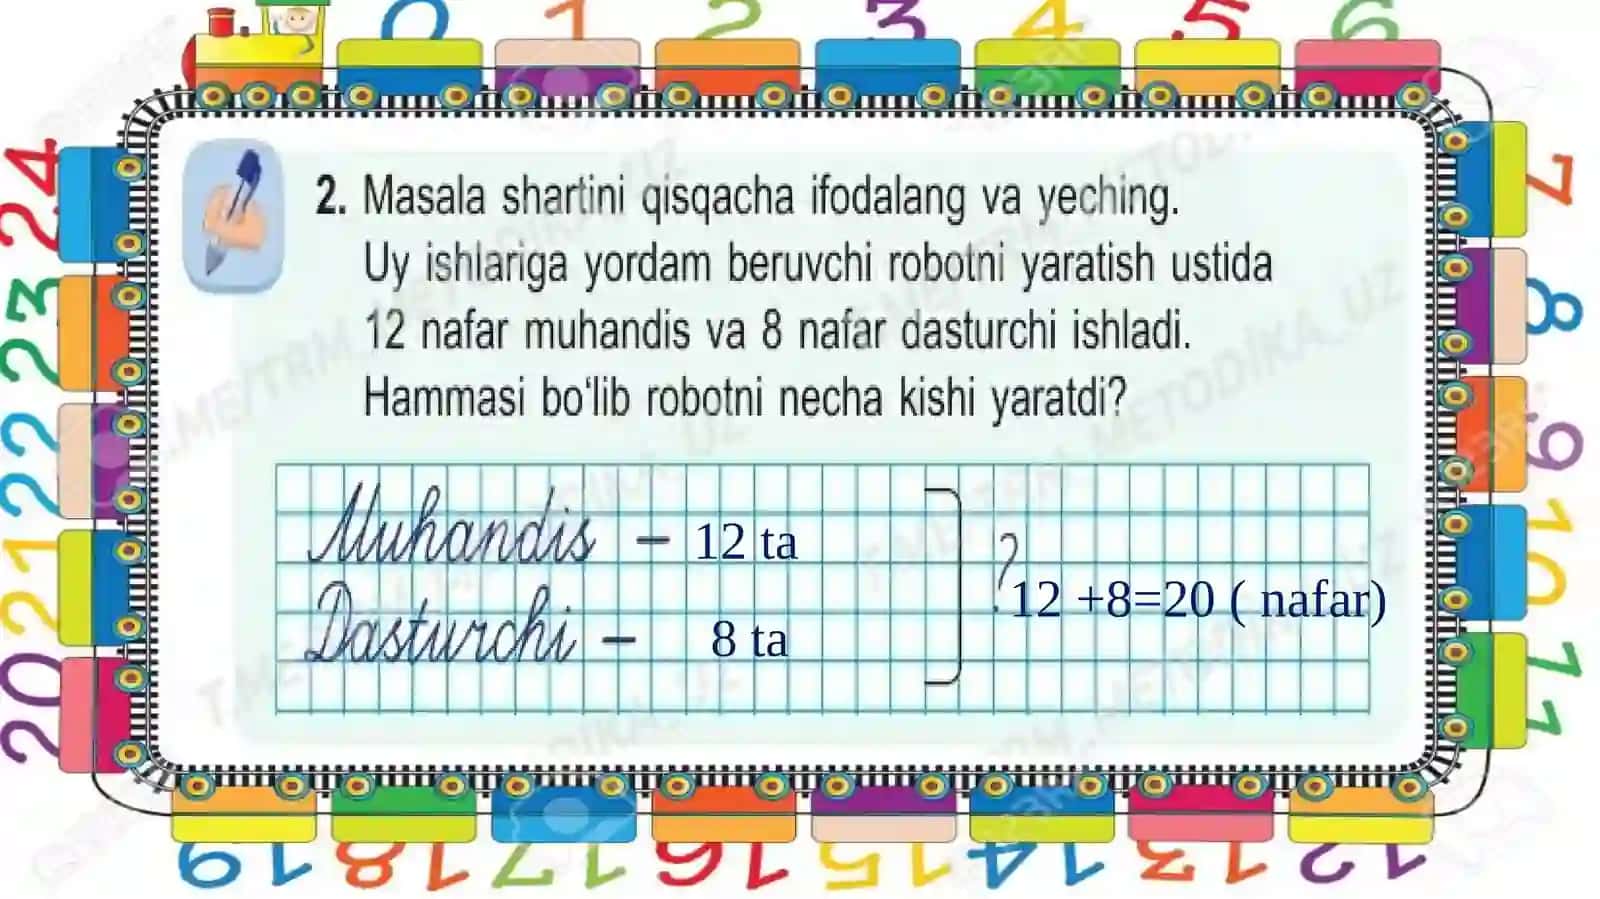 0 1 2 3 4 5 6
2. Masala shartini qisqacha ifodalang va yeching.
Uy ishlariga yordam beruvchi robotni yaratish ustida
12 nafar muhandis va 8 nafar dasturchi ishladi.
Hammasi bo‘lib robotni necha kishi yaratdi?
Muhandis – 12 ta
?
12 +8=20 ( nafar)
Dasturchi – 8 ta
7
8
9
10
11
12
13
14
15
16
17
18
19
20
21
22
23
24
T.ME/TRM_METODIKA_UZ